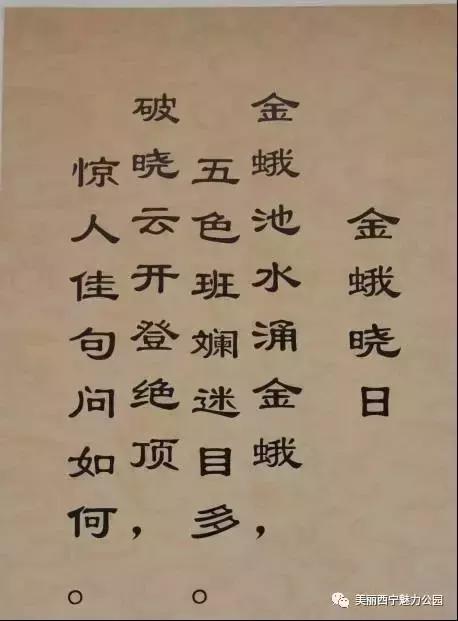 金蛾晓日
金蛾池水涌金蛾，
五色班斓迷目多。
破晓云开登绝顶，
惊人佳句问如何。
美丽西宁魅力公园